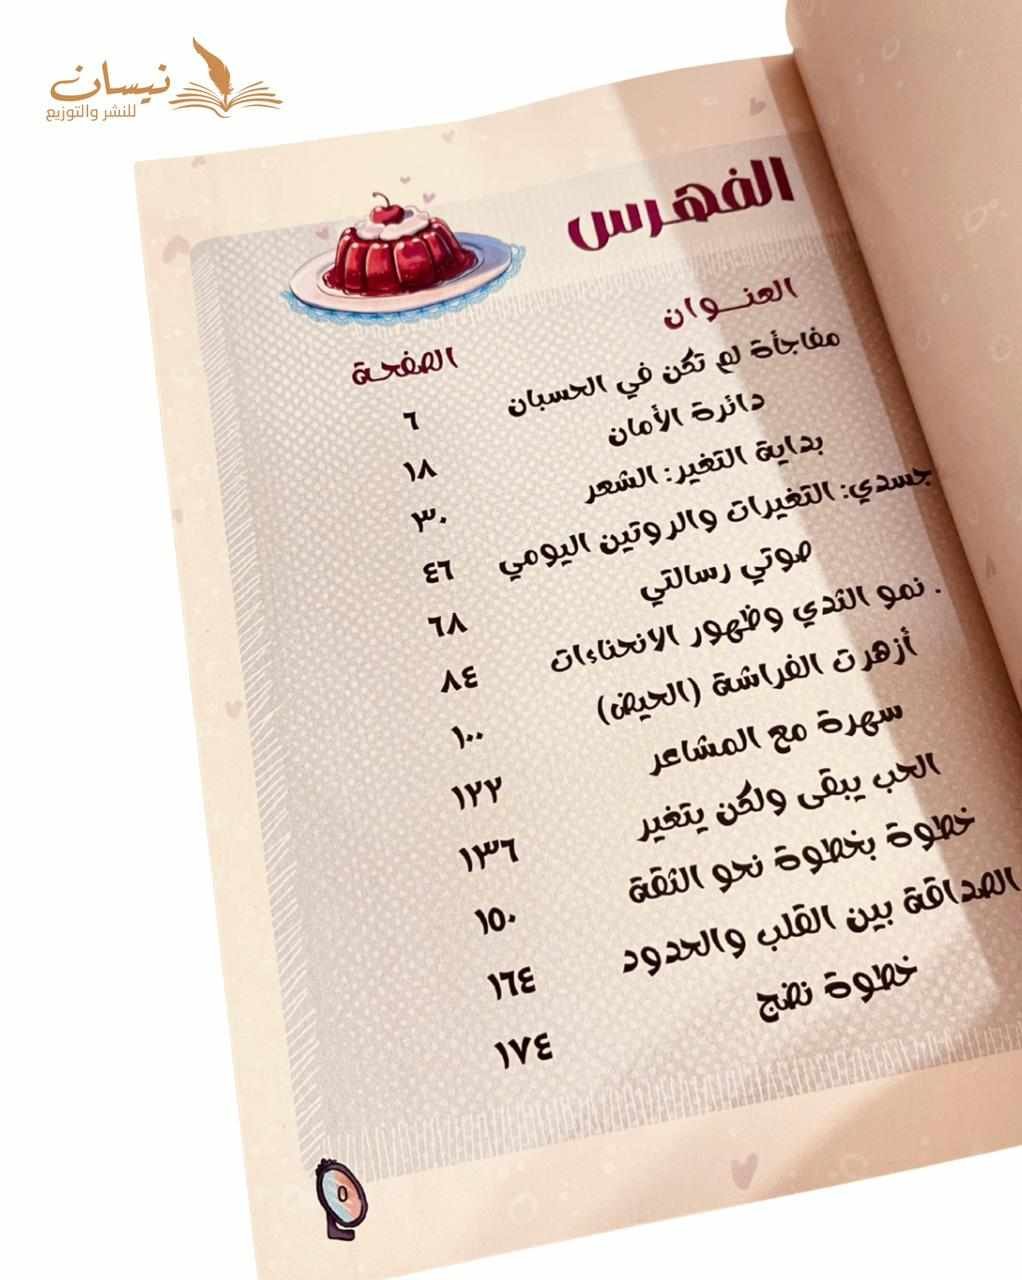 نيسان
للنشر والتوزيع
الفهرس
العنوان
الصفحة
مفاجأة لم تكن في الحسبان
٦
دائرة الأمان
١٨
بداية التغير: الشعر
٣٠
جسدي: التغيرات والروتين اليومي
٤٦
صوتي رسالتي
٦٨
. نمو الثدي وظهور الانحناءات
٨٤
أزهرت الفراشة (الحيض)
١٠٠
سهرة مع المشاعر
١٢٢
الحب يبقى ولكن يتغير
١٣٦
خطوة بخطوة نحو الثقة
١٥٠
الصداقة بين القلب والحدود
١٦٤
خطوة نضج
١٧٤
٥